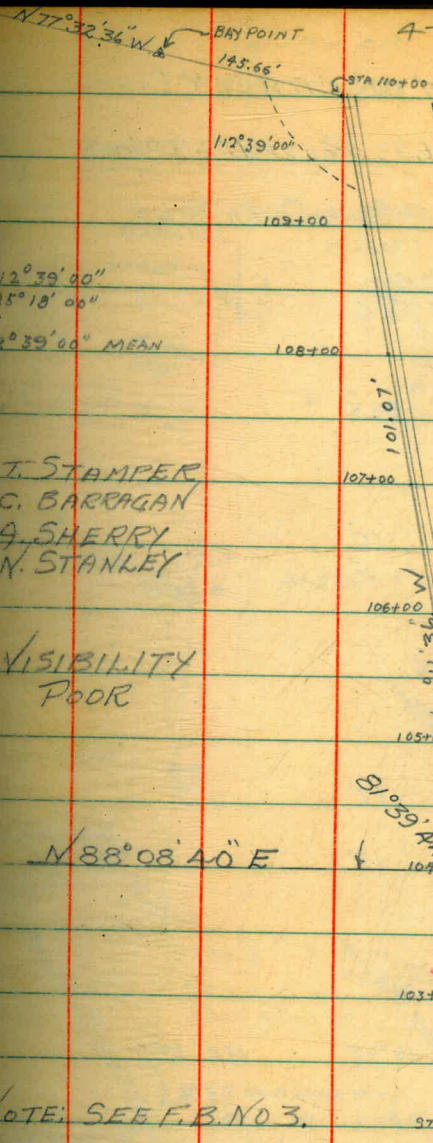 N 77°32'36" W
BAY POINT
4-
145.66'
STA 110+00
112°39'00"
109+00
12°39'00"
5°18'00"
°39'00" MEAN
108+00
101.07'
T. STAMPER
107+00
C. BARRAGAN
A. SHERRY
N. STANLEY
106+00
W
VISIBILITY
POOR
105+
81°39'
N 88°08'40" E
104
103+
OTE: SEE F.B. NO 3.
ST